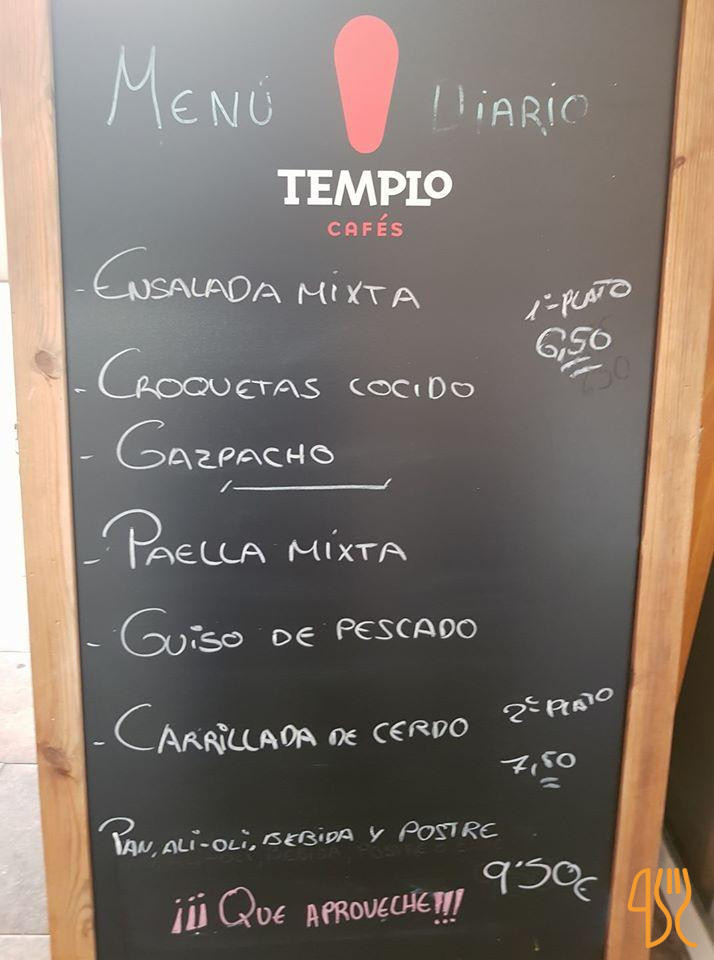 MENÚ DIARIO
TEMPLO
CAFÉS
- ENSALADA MIXTA
1º PLATO
6,50
- CROQUETAS COCIDO
- GAZPACHO
- PAELLA MIXTA
- GUISO DE PESCADO
2º PLATO
- CARRILLADA DE CERDO
7,50
PAN, ALI-OLI, BEBIDA Y POSTRE
9'50€
¡¡¡ QUE APROVECHE!!!